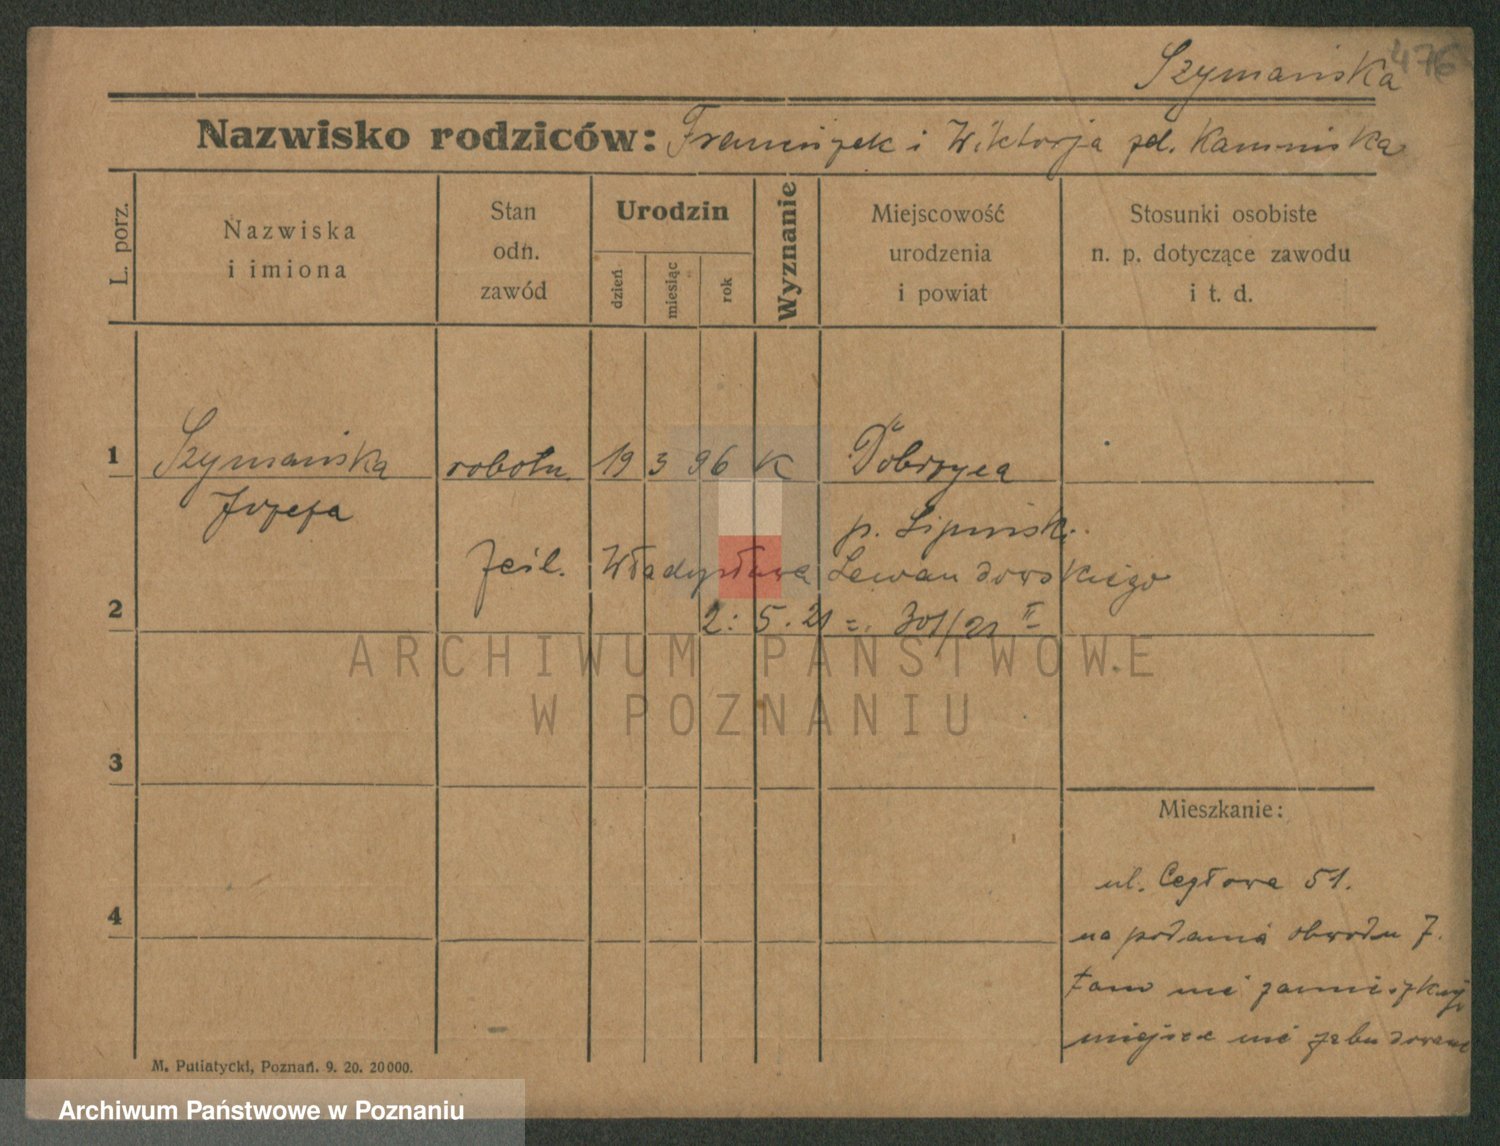 476
Szymańska
Nazwisko rodziców: Franciszek i Wiktorja zd. Kamińska
L. porz.
Nazwiska
i imiona
Stan
odn.
zawód
Urodzin
dzień
miesiąc
rok
Wyznanie
Miejscowość
urodzenia
i powiat
Stosunki osobiste
n. p. dotyczące zawodu
i t. d.
1 Szymańska robotn. 19 3 96 K Dobrzyca
Józefa
p. Lipiński
zaśl. Władysława Lewandowskiego
2
2. 5. 21 = 301/21 II
ARCHIWUM PAŃSTWOWE
W POZNANIU
3
Mieszkanie:
ul. Cegłowa 51.
4
na podania obwodu 7.
tam nie zamieszkuje
miejsce nie zabudowane
M. Putiatycki, Poznań. 9. 20. 20000.
Archiwum Państwowe w Poznaniu